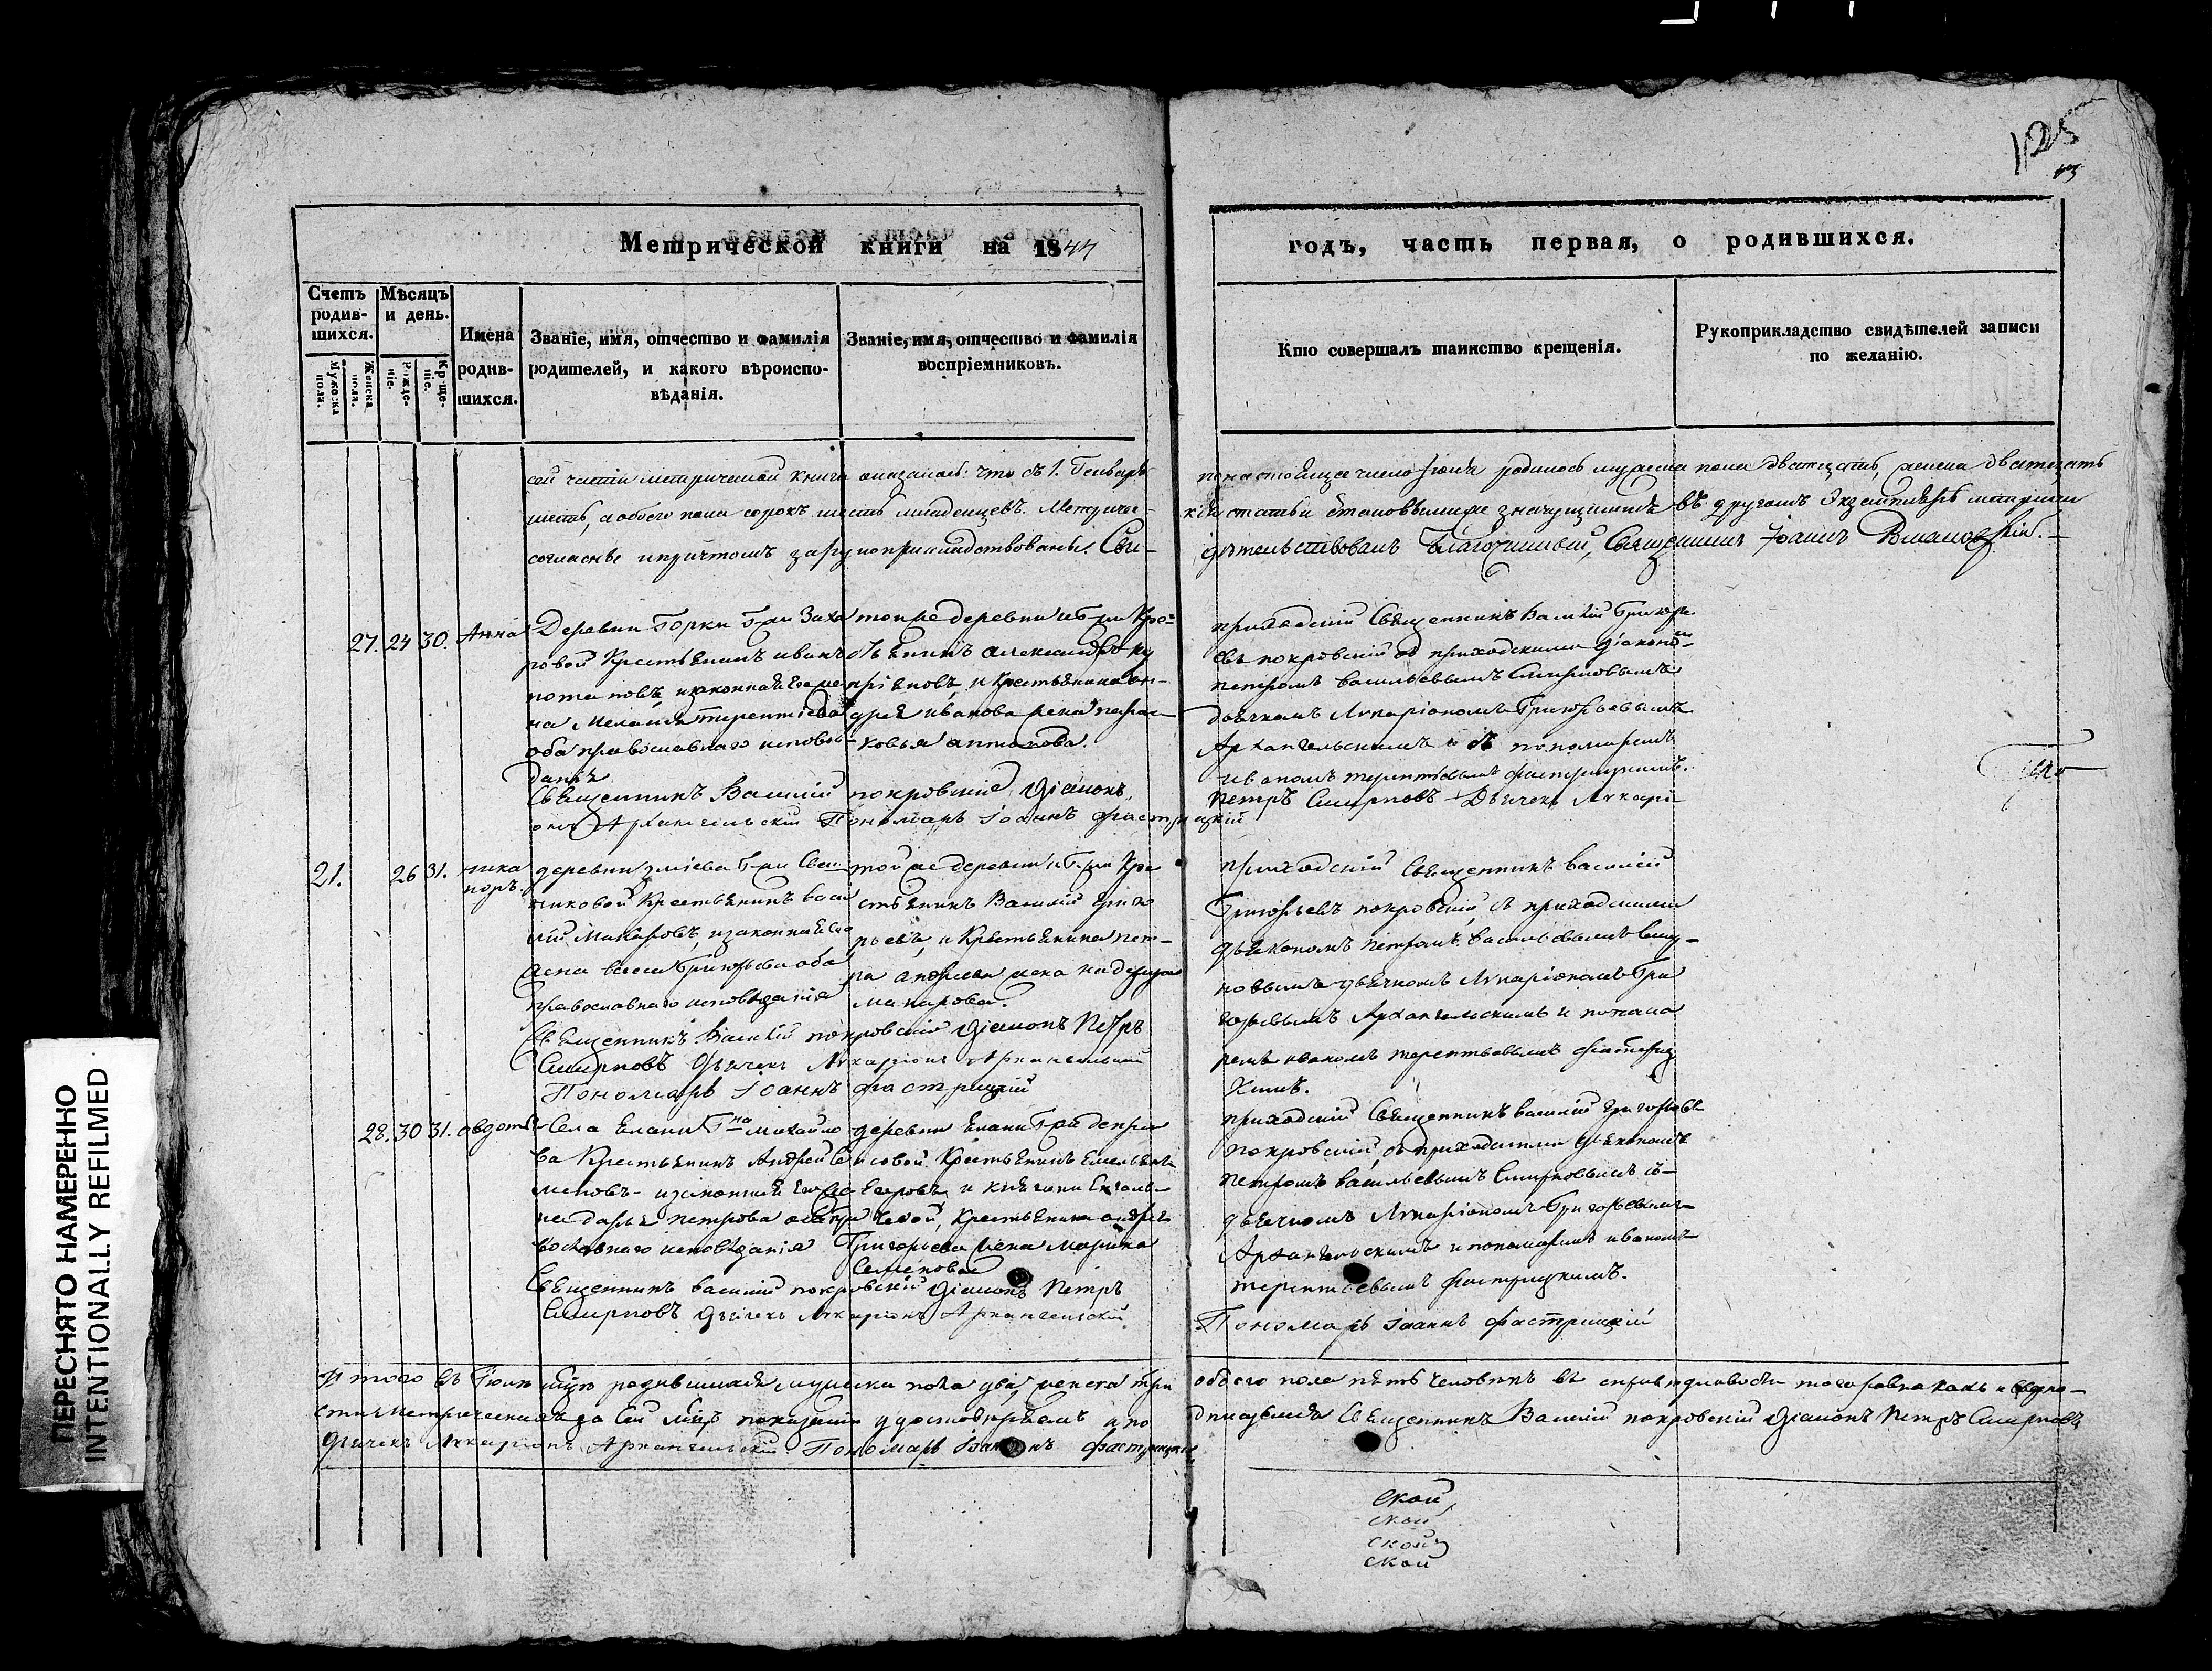 125
Метрической книги на 1844
годъ, часть первая, о родившихся.
Счетъ родив-шихся.
Мужеска пола.
Женска пола.
Мѣсяцъ и день.
Рожде-ніе.
Креще-ніе.
Имена родив-шихся.
Званіе, имя, отчество и фамилія родителей, и какого вѣроиспо-вѣданія.
Званіе, имя, отчество и фамилія воспріемниковъ.
Кто совершалъ таинство крещенія.
Рукоприкладство свидѣтелей записи по желанію.
сей части метрической книги оказалось что съ 1. Генваря по настоящее число Іюля родилось мужеска пола дватцать, женска дватцать
шесть, а обоего пола сорокъ шесть младенцевъ. Метриче-кія статьи въ другомъ Экземплярѣ метрики
согласны и причтомъ зарукоприкладствованы. Сви-дѣтельствовалъ Благочинный, Священникъ Іоаннъ
27. 24 30. Анна
Деревни Горки Г-жи Заха
ровой Крестьянинъ иванъ
и законная его же
на Меланья терентіева
оба православнаго исповѣ-
данія
тойже деревни и Г-жи Кре-
стьянинъ александръ ку
пріяновъ, и Крестьянина ан-
дрея иванова жена парас-
ковья антонова.
приходскій Священникъ Василій Григорь
евъ покровскій съ приходскими діакономъ
петромъ васильевымъ Смирновымъ
дьячкомъ Иларіономъ Григорьевымъ
Архангельскимъ и съ пономаремъ
иваномъ терентьевымъ фастрицкимъ.
Священникъ Василій покровскій Діаконъ Петръ Смирновъ Дьячекъ Иларі-
онъ Архангельскій Пономарь Іоаннъ фастрицкій
21. 26 31. ника
норъ.
деревни змiева Г-жи Свеч-
никовой Крестьянинъ васи
лій Макаровъ, и законная его
жена васса Григорьева оба
православнаго исповѣданія
той же деревни и Г-жи Кре
стьянинъ Василій Григо
рьевъ, и Крестьянина пет-
ра андреева жена надежда
макарова.
приходскій Священникъ василій
Григорьевъ покровскій, съ приходскими
дьякономъ петромъ васильевымъ смир-
новымъ дьячкомъ Иларіономъ Гри
горьевымъ Архангельскимъ и понома
ремъ иваномъ терентьевымъ фастриц
кимъ.
Священникъ Василій покровскій Діаконъ Петръ
Смирновъ Дьячекъ Иларіонъ Архангельскій
Пономарь Іоаннъ фастрицкій
28. 30 31. авдотья
Села Елани Г-на михайло
ва Крестьянинъ Андрей Се
меновъ и законная его же
на дарья петрова оба пра
вославнаго исповѣданія
деревни Елани Г-жи
Крестьянинъ Емельянъ
Егоровъ и княгини Енгалы-
чевой, Крестьянина андрея
Григорьева жена Марина
Семенова
приходскій Священникъ василій григорьевъ
покровскій, съ приходскими дьякономъ
петромъ васильевымъ Смирновымъ съ
дьячкомъ Иларіономъ Григорьевымъ
Архангельскимъ и пономаремъ иваномъ
терентьевымъ фастрицкимъ.
Священникъ василій покровскій Діаконъ Петръ
Смирновъ Дьячекъ Иларіонъ Архангельскій
Пономарь Іоаннъ фастрицкій
Итого въ Іюлѣ родившихся мужска пола два, женска три обоего пола пять человѣкъ въ справедливости того равно какъ и вѣрно-
сти за сей показаній удостовѣряемъ и по дписуемся Священникъ Василій покровскій Діаконъ Петръ Смирновъ
Дьячекъ Иларіонъ Архангельскій Пономарь Іоаннъ фастрицкій
ской
ской
ской
ской
ПЕРЕСНЯТО НАМЕРЕННО
INTENTIONALLY REFILMED